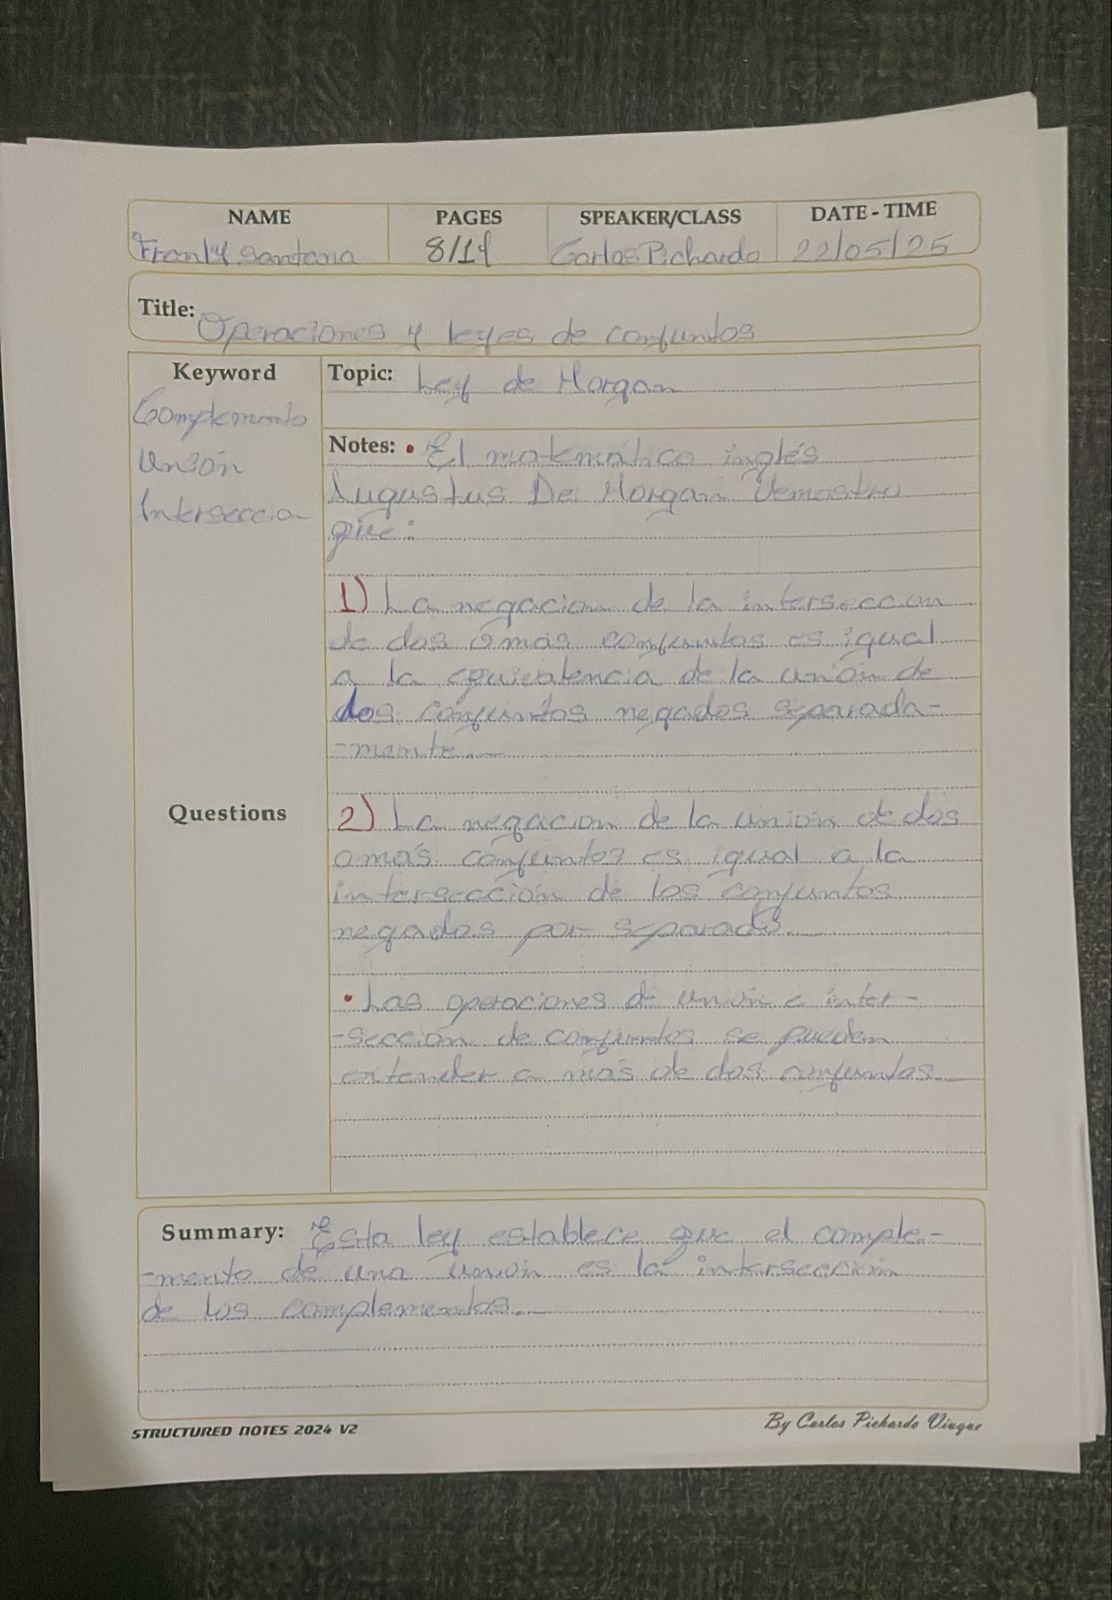 NAME PAGES SPEAKER/CLASS DATE - TIME
Franly Santana 8/14 Carlos Pichardo 22/05/25
Title: Operaciones y leyes de conjuntos
Keyword
Complemento
Unión
Interseccion
Questions
Topic: Ley de Morgan
Notes: • El matemático inglés
Augustus De Morgan Demostro
que:
1) La negacion de la interseccion
de dos o mas conjuntos es igual
a la equivalencia de la unión de
dos conjuntos negados separada-
-mente.
2) La negacion de la unión de dos
o más conjuntos es igual a la
intersección de los conjuntos
negados por separado.
• Las operaciones de unión e inter-
-sección de conjuntos se pueden
extender a más de dos conjuntos.
Summary: Esta ley establece que el comple-
-mento de una unión es la intersección
de los complementos.
STRUCTURED NOTES 2024 V2
By Carlos Pichardo Viuque